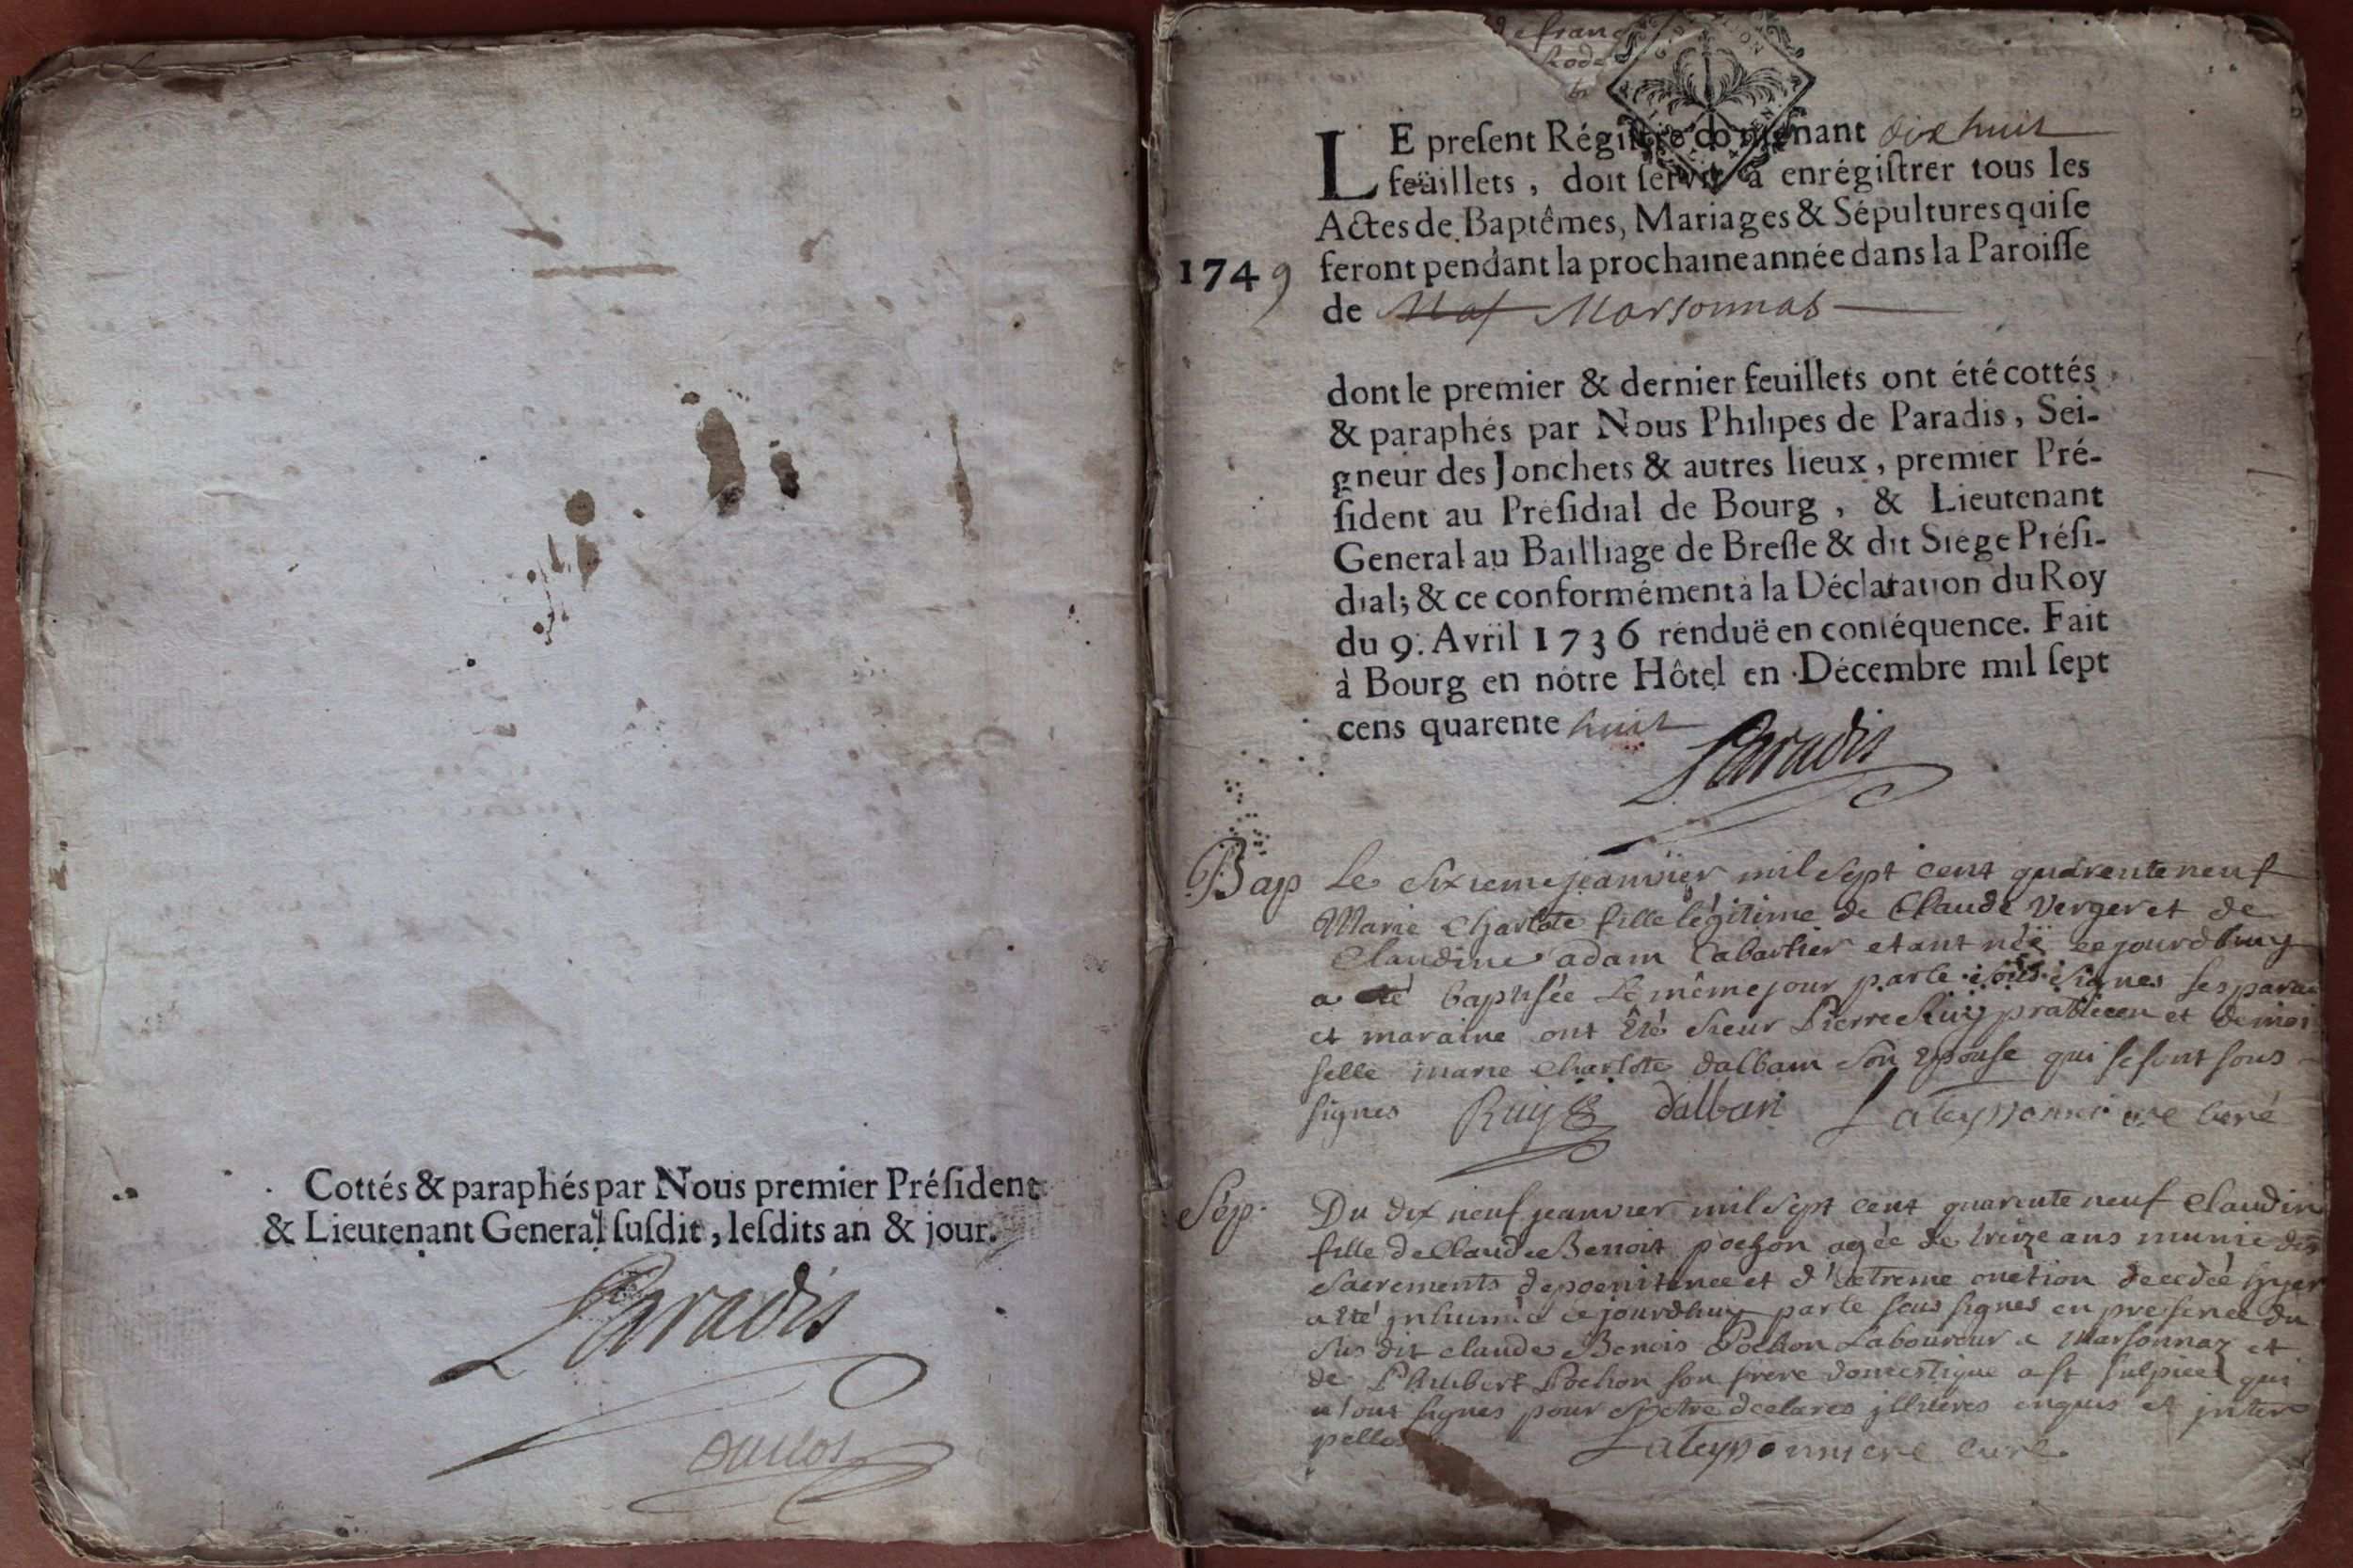 Cottés & paraphés par Nous premier Préſident
& Lieutenant General ſuſdit, leſdits an & jour.
Paradis
Duclos
de franc
LE preſent Régiſtre contenant dix huit
feüillets, doit ſervir à enrégiſtrer tous les
Actes de Baptêmes, Mariages & Sépultures qui ſe
1749 feront pendant la prochaine année dans la Paroiſſe
de Marsonnas
dont le premier & dernier feuillets ont été cottés
& paraphés par Nous Philipes de Paradis, Sei-
gneur des Jonchets & autres lieux, premier Pré-
ſident au Préſidial de Bourg, & Lieutenant
General au Bailliage de Breſſe & dit Siége Préſi-
dial; & ce conformément à la Déclaration du Roy
du 9. Avril 1736 renduë en conſéquence. Fait
à Bourg en nôtre Hôtel en Décembre mil ſept
cens quarente huit
Paradis
Bap Le sixieme jeanvier mil sept cent quarente neuf
Marie Charlote fille légitime de Claude Vergeret de
Claudine adam Cabartier etant née ce jourdhuy
a été baptisée le même jour par le sous signes ses parai
et maraine ont été sieur Pierre Ruy pratticien et demoi
selle marie Charlote dalban son epouse qui se sont sous
signes Ruy dalban Lateyssonniere curé
Sép. Du dix neuf jeanvier mil sept cent quarente neuf Claudin
fille de Claude Benoit pochon agée de treize ans munie des
sacrements de poenitence et d'extreme onction decedée hyer
a été inhumée ce jourdhuy par le sous signes en presence du
sus dit claude Benois Pochon Laboureur a Marsonnaz et
de Philibert Pochon son frere domestique a st sulpice qui
n'ont signes pour etre declares illiteres enquis et inter
pelles Lateyssonniere curé